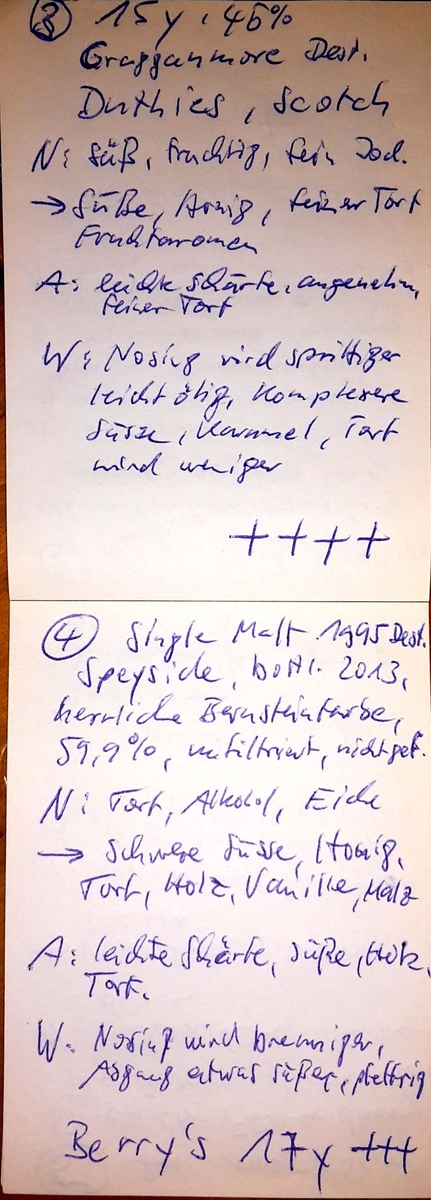 ③ 15y, 46%
Cragganmore Dest.
Duthies, Scotch
N: süß, fruchtig, fein Jod.
→ Süße, Honig, feiner Torf
Fruchtaromen
A: leichte Schärfe, angenehm,
feiner Torf
W: Nosing wird sprittiger
leicht ölig, komplexere
Süsse, Karamel, Torf
wird weniger
++++
④ Single Malt 1995 Dest.
Speyside, bottl. 2013,
herrliche Bernsteinfarbe,
59,9%, unfiltriert, nicht gef.
N: Torf, Alkohol, Eiche
→ Schwere Süsse, Honig,
Torf, Holz, Vanille, Malz
A: leichte Schärfe, Süße, Holz,
Torf.
W: Nosing wird brenniger,
Abgang etwas süßer, pfeffrig
Berry's 17y +++